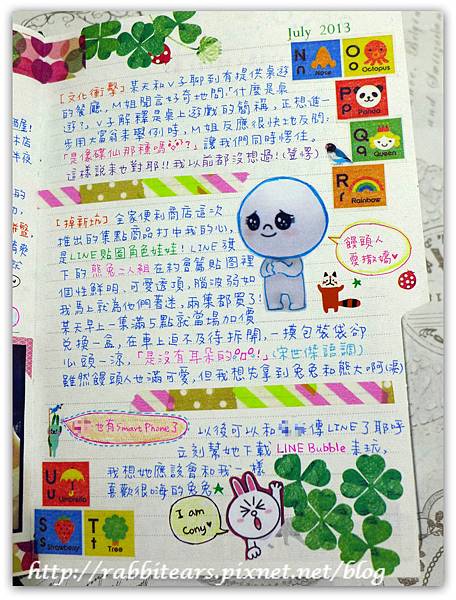 July 2013
N n Nose
O o Octopus
P p Panda
Q q Queen
R r Rainbow
[文化衝擊] 某天和V子聊到有提供桌遊
的餐廳，M姐聞言好奇地問「什麼是桌
遊?」V子解釋是桌上遊戲的簡稱，正想進一
步用大富翁來舉例時，M姐反應很快地反問:
「是像碟仙那種嗎?」讓我們同時愣住。
這樣說來也對耶!!我以前都沒想過!(登愣)
[掉新坑] 全家便利商店這次
推出的集點商品打中我的心，
是LINE貼圖角色娃娃! LINE旗
下的熊兔二人組在約會篇貼圖裡
個性鮮明，可愛透頂，腦波弱如
我馬上就為他們著迷，兩集都買了!
某天早上一集滿5點就當場加價
兌換一盒，在車上迫不及待拆開，一摸包裝袋卻
心頭一涼，「是沒有耳朵的!」(宋世傑語調)
雖然饅頭人也滿可愛，但我想先拿到兔兔和熊大阿(淚)
饅頭人
愛撒嬌
也有Smart Phone了
以後可以和 傳LINE了耶呼
立刻幫她下載 LINE Bubble 來玩，
我想她應該會和我一樣
喜歡很嗨的兔兔
I am
Cony
U u Umbrella
S s Strawberry
T t Tree
http://rabbitears.pixnet.net/blog